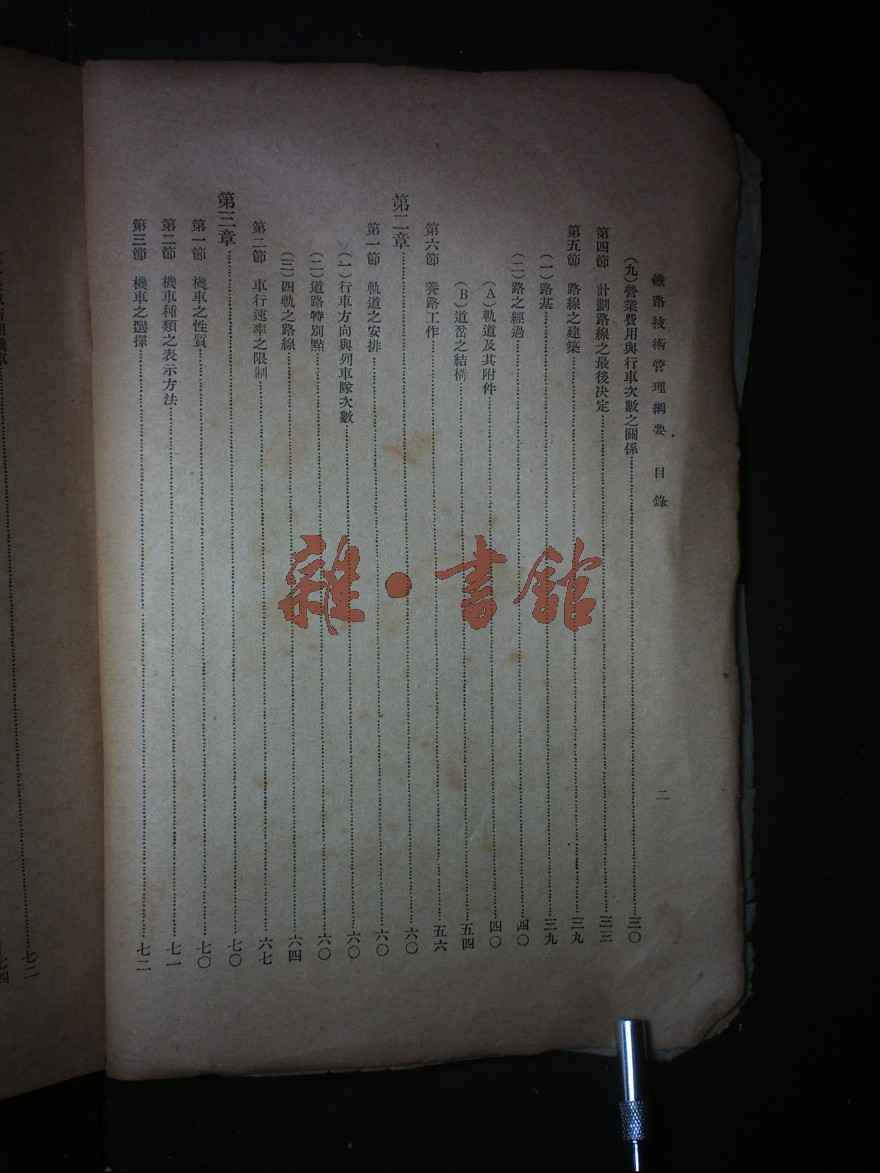 鐵路技術管理綱要 目錄
二
(九)營業費用與行車次數之關係……三〇
第四節 計劃路線之最後決定……三三
第五節 路線之建築……三九
(一)路基……三九
(二)路之經過……四〇
(A)軌道及其附件……四〇
(B)道岔之結構……五四
第六節 養路工作……五六
第二章……六〇
第一節 軌道之安排……六〇
(一)行車方向與列車隊次數……六〇
(二)道路特別點……六〇
(三)四軌之路線……六四
第二節 車行速率之限制……六七
第三章……七〇
第一節 機車之性質……七〇
第二節 機車種類之表示方法……七一
第三節 機車之選擇……七二
七二
七四
雜·書館